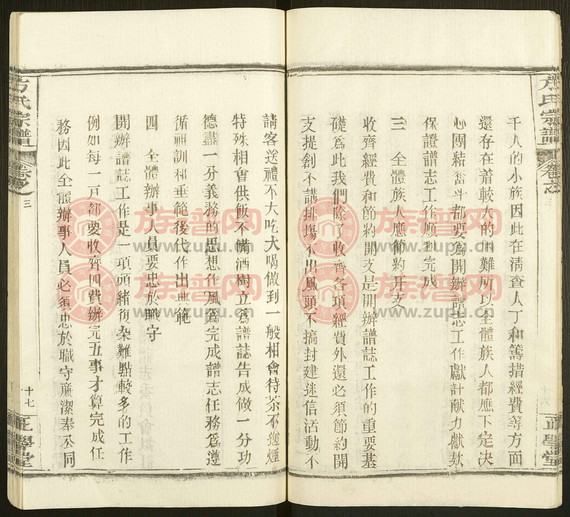 千人的小族因此在清查人丁和籌措經費等方面
还存在着較大的困难所以全體族人都應下定决
心團結奮斗都要爲開辦譜志工作獻計献力献款
保證譜志工作順利完成
三 全體族人應節約开支
收齊經費和節約開支是開辦譜誌工作的重要基
礎爲此我們除了收齊各項經費外還必須節約開
支提創不講排塲不出風頭不搞封建迷信活動不
請客送禮不大吃大喝做到一般相會待茶不递煙
特殊相會供飯不備酒樹立爲譜誌告成做一分功
德盡一分義務的思想作風爲完成譜志任務爲遵
循祖訓和垂範後代作出典範
四 全體辦事人員要忠於職守
開辦譜誌工作是一項頭緒復杂難點較多的工作
例如每一戸都要收齊四費辦完五事才算完成任
務因此全體辦事人員必須忠於職守廉潔奉公同
氏宗譜
卷之三
十七
正學堂
氏宗譜
正學堂
族譜网
www.zupu.cn
族譜网
www.zupu.cn
族譜网
www.zupu.cn
族譜网
www.zupu.cn